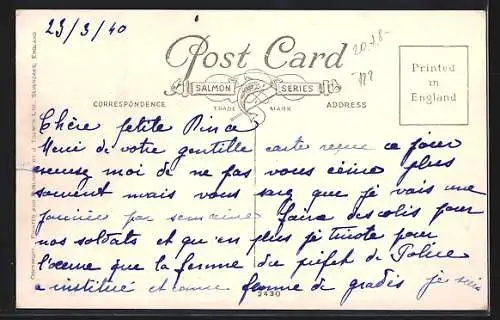 23/3/40
Post Card
SALMON SERIES
TRADE MARK
CORRESPONDENCE
ADDRESS
Printed
in
England
Chère petite
Merci de votre gentille carte reçue ce jour
excusez moi de ne pas vous écrire plus
souvent mais vous savez que je vais une
journée par semaine faire des colis pour
nos soldats et qu'en plus je tricote pour
l'œuvre que la femme du préfet de Police
a institué et comme femme de gradés je suis
2430